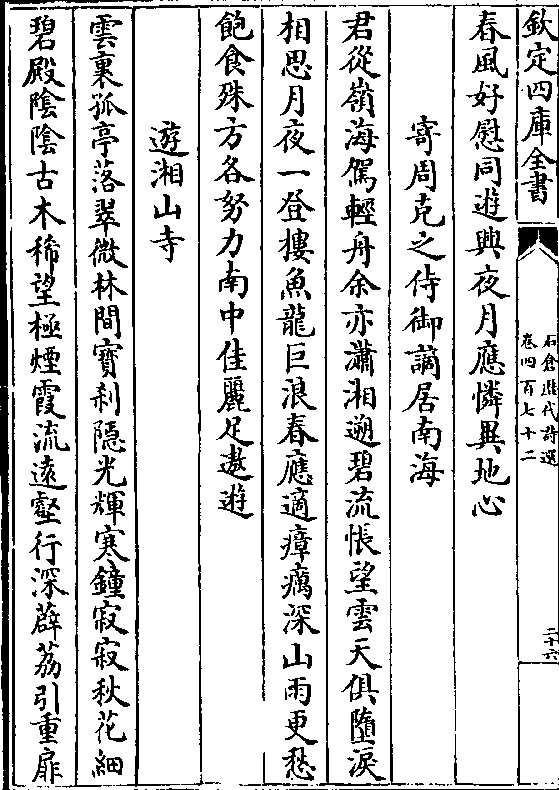 欽定四庫全書
石倉歷代詩選
卷四百七十二
二十六
春風好慰同遊興夜月應憐異地心
寄周克之侍御謫居南海
君從嶺海駕輕舟余亦瀟湘遡碧流悵望雲天俱墮淚
相思月夜一登摟魚龍巨浪春應適瘴癘深山雨更愁
飽食殊方各努力南中佳麗足遨遊
遊湘山寺
雲裏孤亭落翠微林間寶刹隠光輝寒鐘寂寂秋花細
碧殿陰陰古木稀望極煙霞流遠壑行深薜荔引重扉